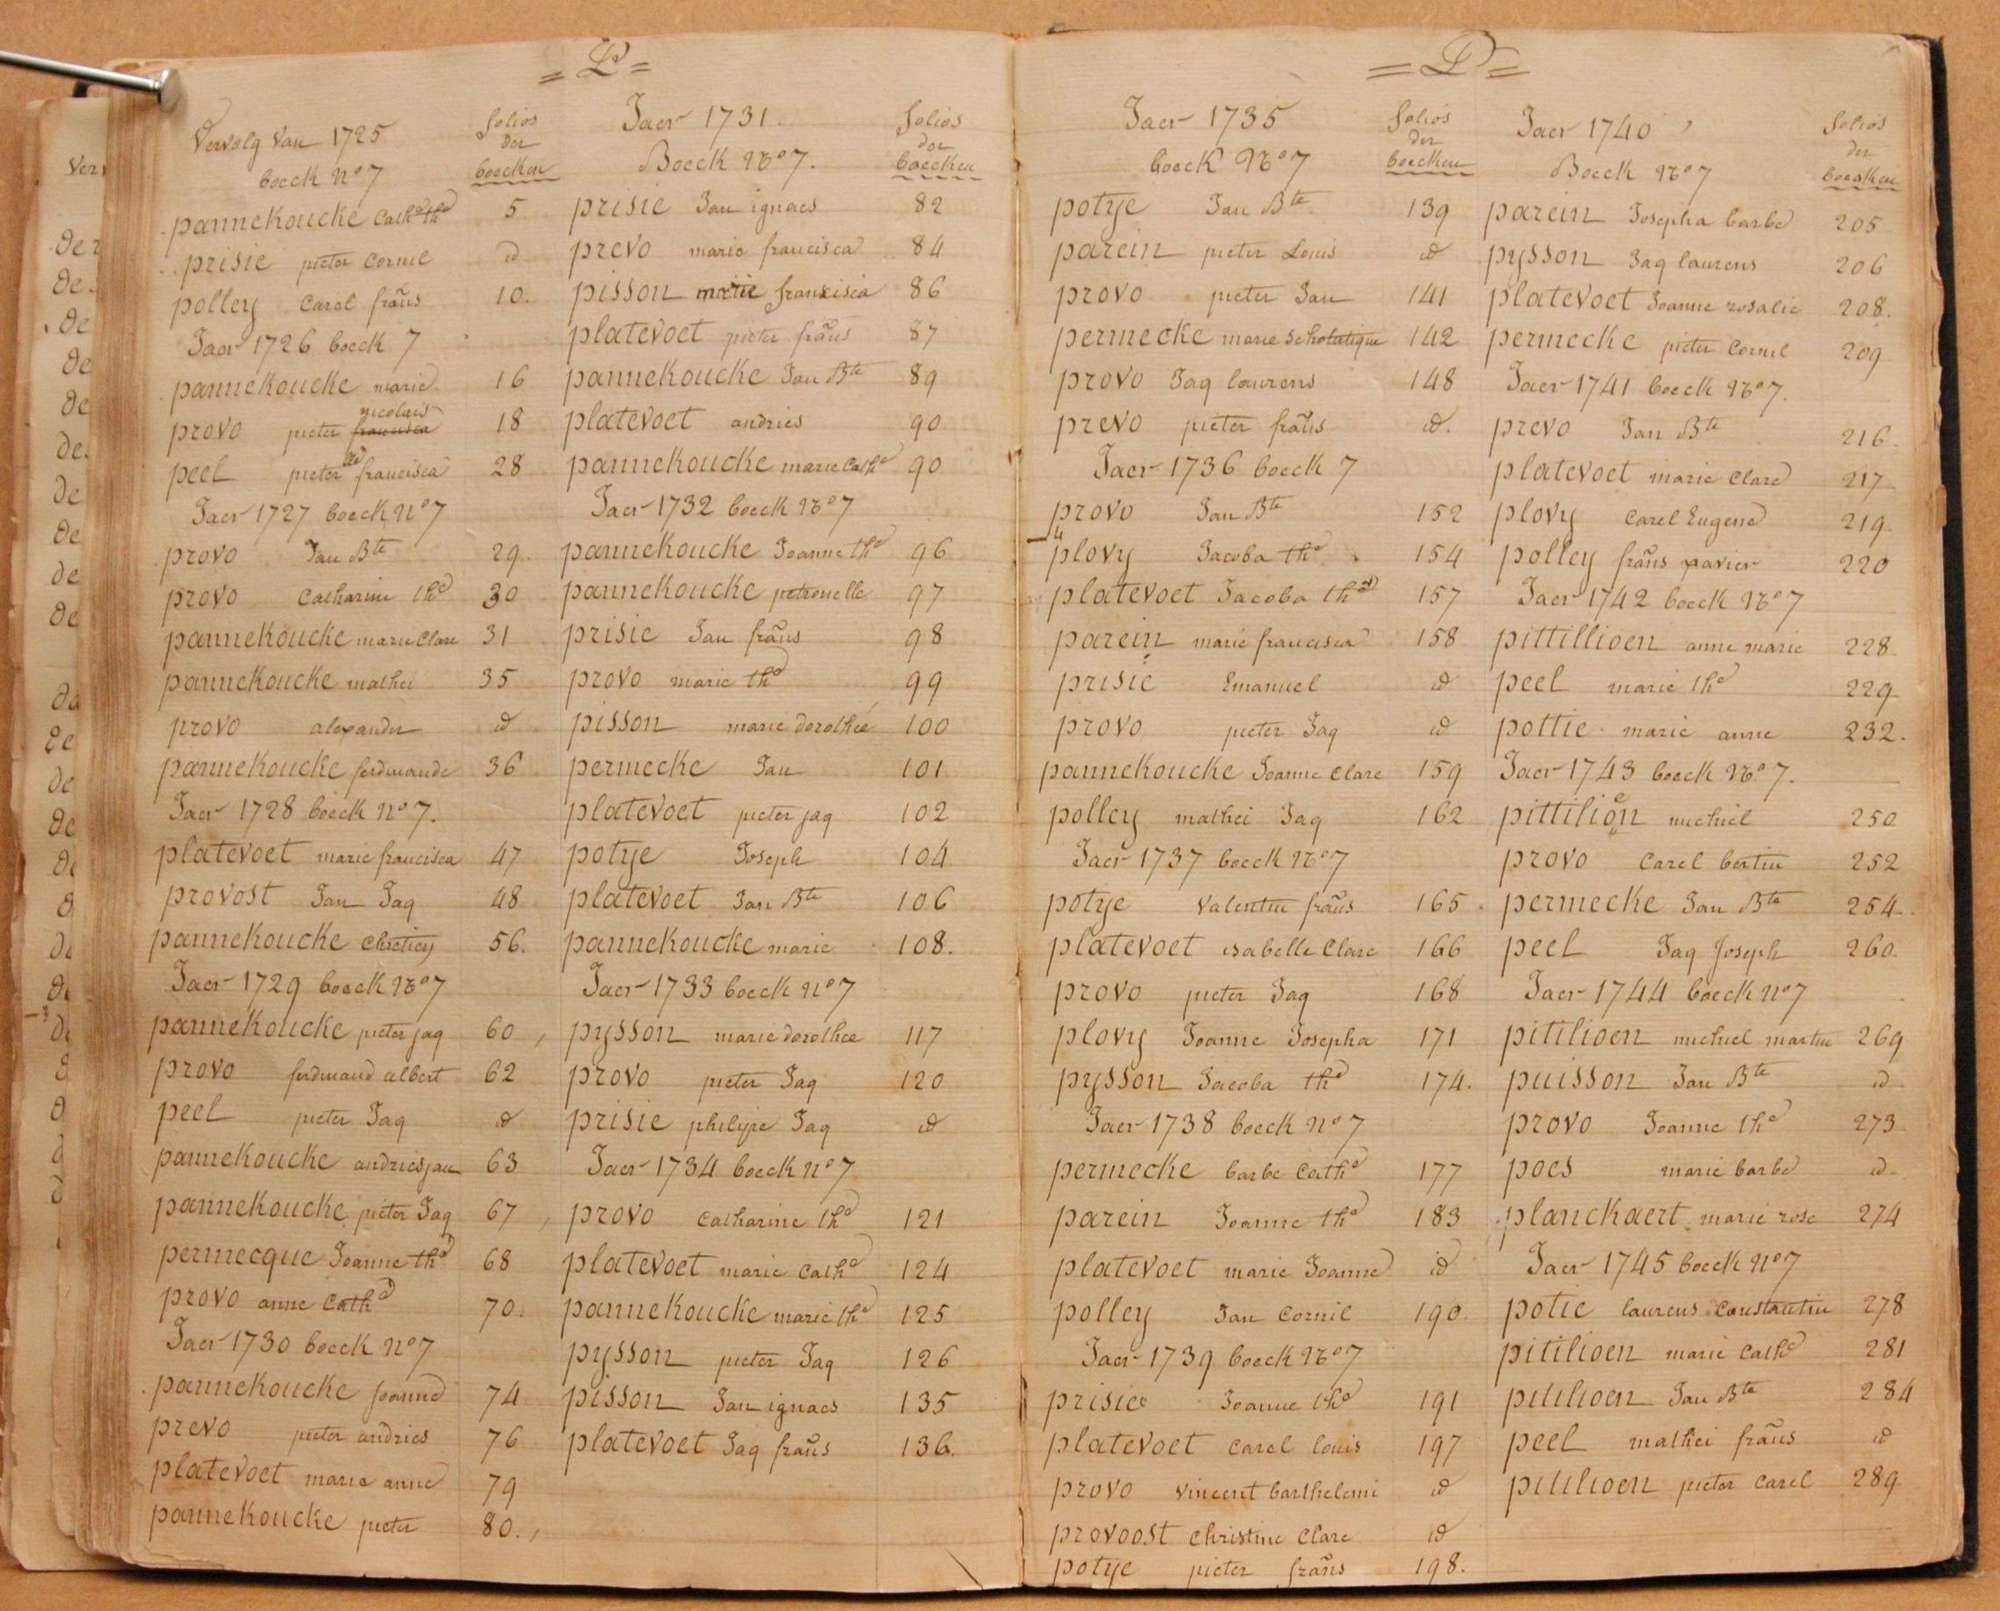 = P =
Vervolg Van 1725
boeck N° 7
folios
der
boecken
pannekoucke Cath^e th^e 5
prisie pieter Cornil id
polley Carel frañs 10.
Jaer 1726 boeck 7
pannekoucke marie 16
nicolais
provo pieter francisca 18
peel pieter francisca 28
Jaer 1727 boeck N° 7
provo Jan B^te 29
provo Catharine th^e 30
pannekoucke marie Clare 31
pannekoucke mathei 35
provo alexander id
pannekoucke ferdinande 36
Jaer 1728 boeck N° 7.
platevoet marie francisca 47
provost Jan Jaq 48
pannekoucke Chretien 56.
Jaer 1729 boeck N° 7
pannekoucke pieter jaq 60
provo ferdinand albert 62
peel pieter Jaq id
pannekoucke andries jan 63
pannekoucke pieter Jaq 67
permecque Joanne th^e 68
provo anne Cath^e 70.
Jaer 1730 boeck N° 7
pannekoucke Joanne 74
prevo pieter andries 76
platevoet marie anne 79
pannekoucke pieter 80.
Jaer 1731.
Boeck N° 7.
folios
der
boecken
prisie Jan ignaes 82
prevo marie francisca 84
pisson marie francisca 86
platevoet pieter frañs 87
pannekoucke Jan B^te 89
platevoet andries 90
pannekoucke marie Cath^e 90
Jaer 1732 boeck N° 7
pannekoucke Joanne th^e 96
pannekoucke petronelle 97
prisie Jan frañs 98
provo marie th^e 99
pisson marie dorothée 100
permecke Jan 101
platevoet pieter jaq 102
potye Joseph 104
platevoet Jan B^te 106
pannekoucke marie 108.
Jaer 1733 boeck N° 7
pysson marie dorothee 117
provo pieter Jaq 120
prisie philipe Jaq id
Jaer 1734 boeck N° 7
provo Catharine th^e 121
platevoet marie Cath^e 124
pannekoucke marie th^e 125
pysson pieter Jaq 126
pisson Jan ignaes 135
platevoet Jaq frañs 136.
= P =
Jaer 1735
boeck N° 7
folios
der
boecken
potye Jan B^te 139
parein pieter Louis id
provo pieter Jan 141
permecke marie Scholutique 142
provo Jaq laurens 148
prevo pieter frañs id.
Jaer 1736 boeck 7
provo Jan B^te 152
plovy Jacoba th^e 154
platevoet Jacoba th^e 157
parein marie francisca 158
prisie Emanuel id
provo pieter Jaq id
pannekoucke Joanne Clare 159
polley mathei Jaq 162
Jaer 1737 boeck N° 7
potye Valentin frañs 165
platevoet isabelle Clare 166
provo pieter Jaq 168
plovy Joanne Josepha 171
pysson Jacoba th^e 174.
Jaer 1738 boeck N° 7
permecke barbe Cath^e 177
parein Joanne th^e 183
platevoet marie Joanne id
polley Jan Cornil 190
Jaer 1739 boeck N° 7
prisie Joanne th^e 191
platevoet Carel louis 197
provo Vincent barthelemi id
provoost Christine Clare id
potye pieter frañs 198.
Jaer 1740
Boeck N° 7
folios
der
boecken
parein Josepha barbe 205
pysson Jaq laurens 206
platevoet Joanne rosalie 208.
permecke pieter Cornil 209
Jaer 1741 boeck N° 7.
prevo Jan B^te 216
platevoet marie Clare 217
plovy Carel Eugene 219
polley frañs xavier 220
Jaer 1742 boeck N° 7
pittillioen anne marie 228
peel marie th^e 229
pottie marie anne 232.
Jaer 1743 boeck N° 7.
pittilion michiel 250
provo Carel bertin 252
permecke Jan B^te 254
peel Jaq Joseph 260
Jaer 1744 boeck N° 7
pitilioen michiel martin 269
puisson Jan B^te id
provo Joanne th^e 273
poes marie barbe id
planckaert marie rose 274
Jaer 1745 boeck N° 7
potie laurens Constantin 278
pitilioen marie Cath^e 281
pitilioen Jan B^te 284
peel mathei frañs id
pitilioen pieter Carel 289